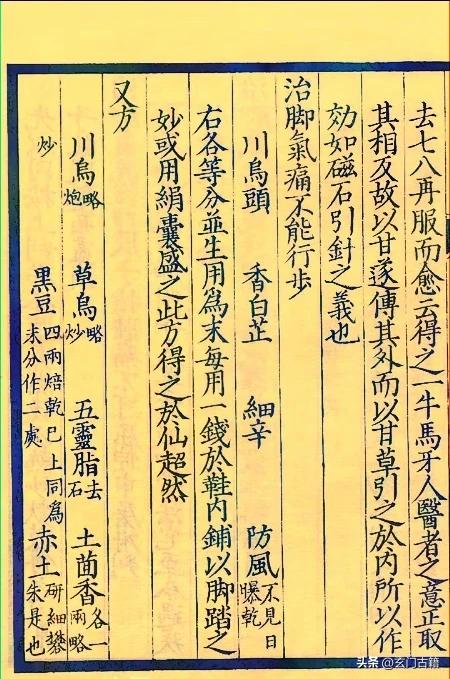 去七八再服而愈云得之一牛馬牙人醫者之意正取
其相反故以甘遂傳其外而以甘草引之於内所以作
効如磁石引針之義也
治脚氣痛不能行步
川烏頭 香白芷 細辛 防風不見日曝乾
右各等分並生用爲末每用一錢於鞋内鋪以脚踏之
妙或用絹囊盛之此方得之於仙超然
又方
川烏略炮 草烏略炒 五靈脂去石 土茴香各一兩略
炒 黑豆四兩焙乾已上同爲末分作二處 赤土研細礬朱是也
头条 @玄门古籍